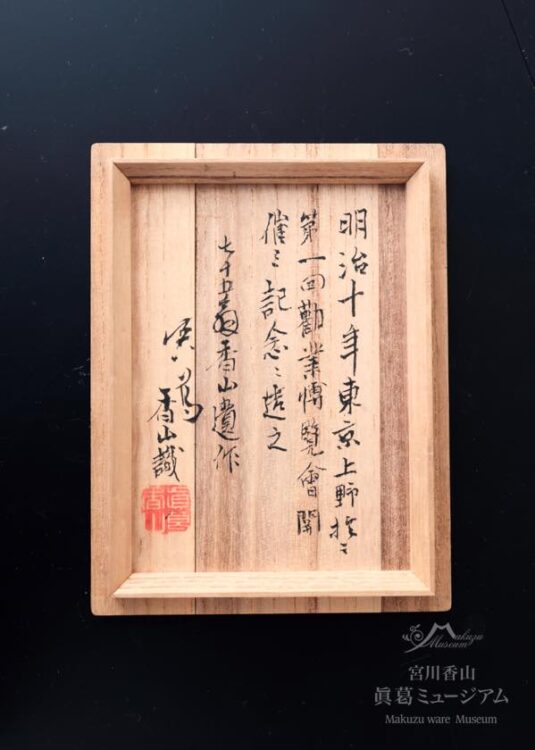 明治十年東京上野於ニ
第一回勸業博覽會開
催ミ記念ニ造之
七十五翁香山遺作
眞葛
香山識
眞葛
香山
Makuzu
Museum
宮川香山
眞葛ミュージアム
Makuzu ware Museum